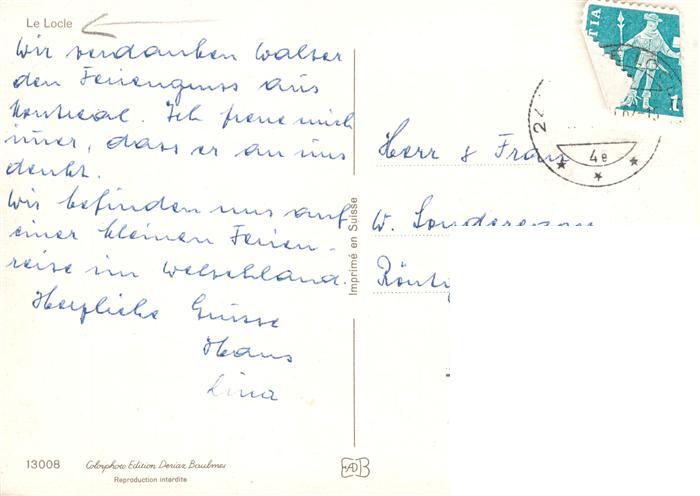 Le Locle
Wir verdanken Walter
den Feriengruss aus
Montreal. Ich freue mich
imer, dass er an uns
denkt.
Wir befinden uns auf
einer kleinen Ferien-
reise im Welschland.
Herzliche Grüsse
Hans
Lina
Imprimé en Suisse
TIA
24
4e
Herr & Frau
W. Sonderegger
Rönt
13008 Colorphoto Edition Deriaz Baulmes
Reproduction interdite